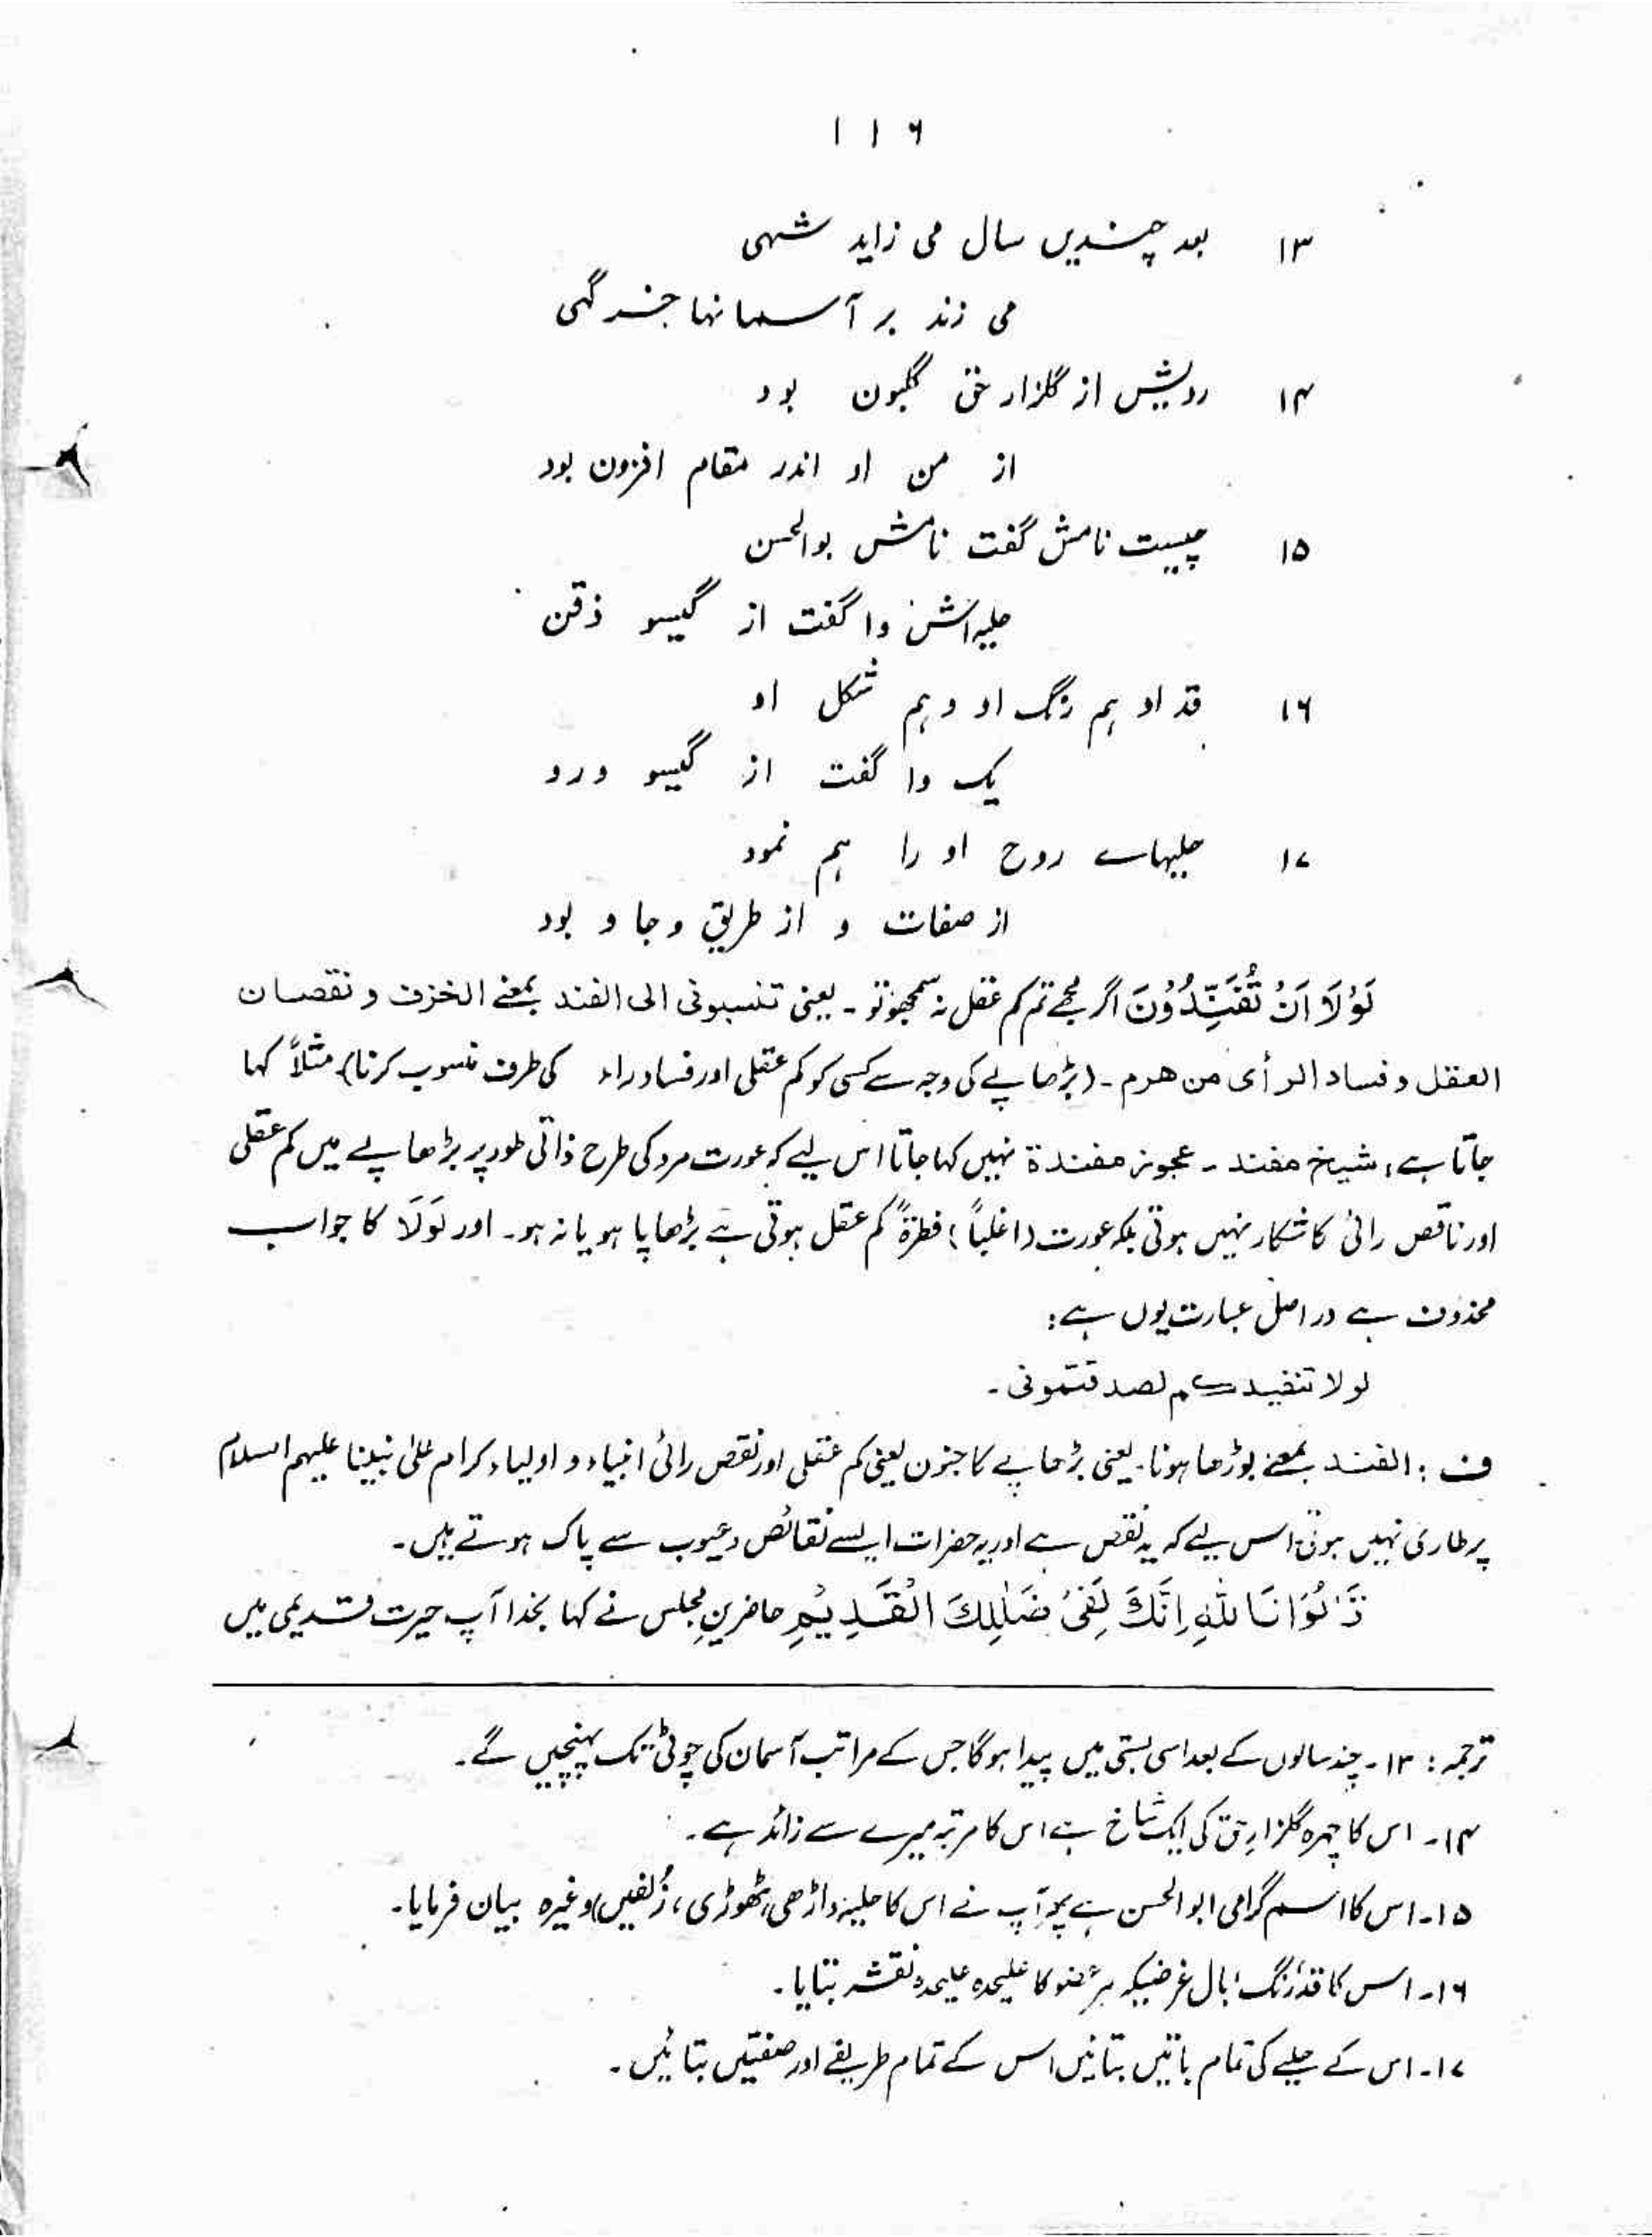 ۱۱۶
۱۳ بعد چندیں سال می زاید شہی
می زند بر آسمانہا خرگہی
۱۴ رویش از گلزار حق گلگون بود
از من او اندر مقام افزون بود
۱۵ چیست نامش گفت نامش بوالحسن
حلیہ اش وا گفت از گیسو ذقن
۱۶ قد او ہم رنگ او و ہم شکل او
یک وا گفت از گیسو ورو
۱۷ حلیہاے روح او را ہم نمود
از صفات و از طریق و جا و بود
لَوْلَا اَنْ تُفَنِّدُوْنَ اگر مجھے تم کم عقل نہ سمجھو تو۔ یعنی تنسبونی الی الفند بمعنے الخرف و نقصان
العقل و فساد الرأی من ھرم۔ (بڑھاپے کی وجہ سے کسی کو کم عقلی اور فساد راء کی طرف منسوب کرنا) مثلاً کہا
جاتا ہے، شیخ مفند۔ عجوز مفندۃ نہیں کہا جاتا اس لیے کہ عورت مرد کی طرح ذاتی طور پر بڑھاپے میں کم عقلی
اور ناقص رائی کا شکار نہیں ہوتی بلکہ عورت (اغلباً) فطرۃً کم عقل ہوتی ہے بڑھاپا ہو یا نہ ہو۔ اور لَوْلَا کا جواب
محذوف ہے در اصل عبارت یوں ہے:
لو لا تنفیدکم لصدقتمونی۔
ف: الفند بمعنے بوڑھا ہونا۔ یعنی بڑھاپے کا جنون یعنی کم عقلی اور نقص رائی انبیاء و اولیاء کرام علیٰ نبینا علیہم السلام
پر طاری نہیں ہوتی اس لیے کہ یہ نقص ہے اور یہ حضرات ایسے نقائص و عیوب سے پاک ہوتے ہیں۔
قَالُوْا تَاللّٰهِ اِنَّكَ لَفِیْ ضَلٰلِكَ الْقَدِیْمِ حاضرینِ مجلس نے کہا بخدا آپ حیرت قدیمی میں
ترجمہ: ۱۳۔ چند سالوں کے بعد اسی بستی میں پیدا ہوگا جس کے مراتب آسمان کی چوٹی تک پہنچیں گے۔
۱۴۔ اس کا چہرہ گلزارِ حق کی ایک شاخ ہے اس کا مرتبہ میرے سے زائد ہے۔
۱۵۔ اس کا اسم گرامی ابو الحسن ہے پھر آپ نے اس کا حلیہ (داڑھی، ٹھوڑی، زُلفیں) وغیرہ بیان فرمایا۔
۱۶۔ اس کا قد، رنگ، بال غرضیکہ ہر عضو کا علیحدہ علیحدہ نقشہ بتایا۔
۱۷۔ اس کے حلیے کی تمام باتیں بتائیں اس کے تمام طریقے اور صفتیں بتائیں۔